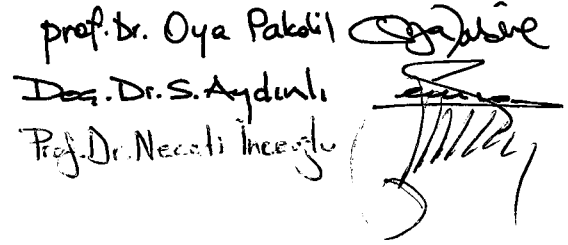 prof. Dr. Oya Pakdil
Doç. Dr. S. Aydınlı
Prof. Dr. Necati İnceoğlu